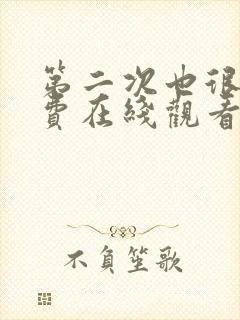 第二次也很
費在綫觀看
不負笙歌